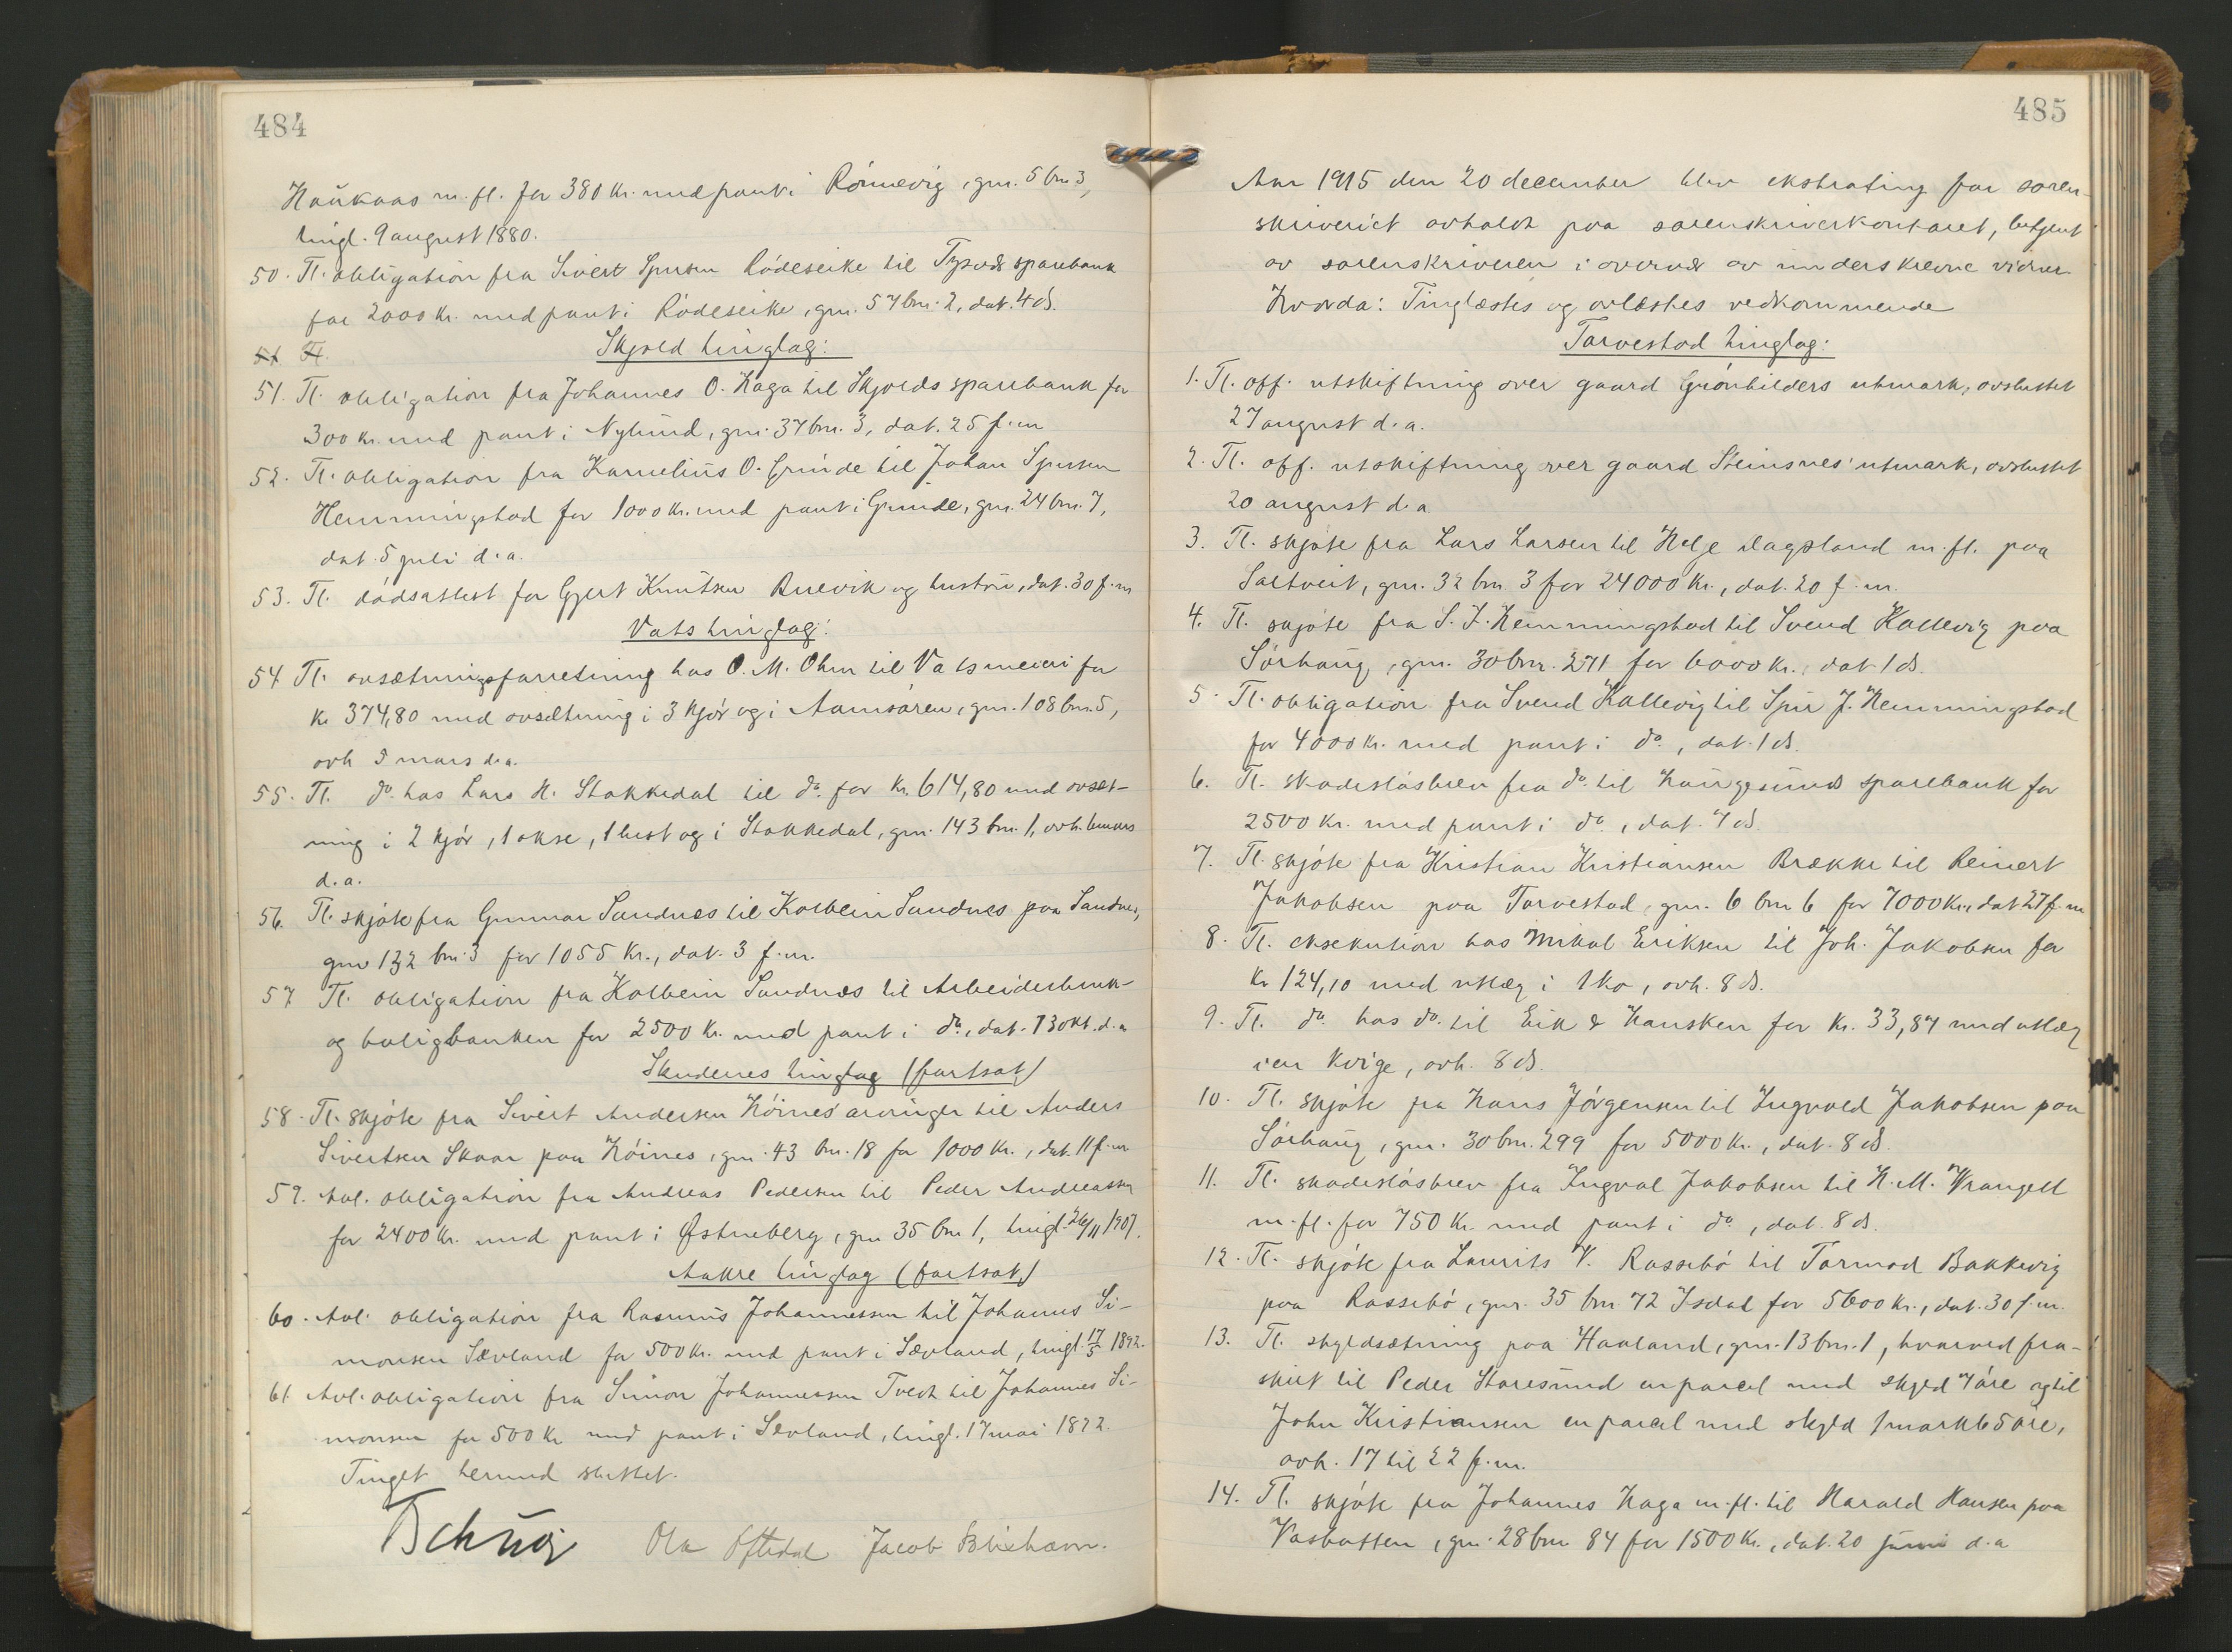 484
Haukaas m. fl. for 380 kr. med pant i Rönnevig, gnr. 5 bnr 3,
tingl. 9 august 1880.
50. Tl. obligation fra Sivert Spersen Rödeseike til Tysvær sparebank
for 2000 kr. med pant i Rödeseike, gnr. 57 bnr. 2, dat. 4 ds.
51. Tl.
Skjold tinglag:
51. Tl. obligation fra Johannes O. Haga til Skjolds sparebank for
300 kr. med pant i Nylund, gnr. 37 bnr. 3, dat. 25 f.m
52. Tl. obligation fra Kornelius O. Grinde til Johan
Hemmingstad for 1000 kr. med pant i Grinde, gnr. 24 bnr. 7,
dat. 5 juli d.a.
53. Tl. dödsattest for Gjert Knutsen Buevik og hustru, dat. 30 f.m
Vats tinglag:
54 Tl. avsætningsforretning hos O. M. Ohm til Vats meieri for
kr 374,80 med avsætning i 3 kjör og i Aamsosen, gnr. 108 bnr. 5,
avh 5 mars d.a.
55. Tl. do. hos Lars H. Stakkedal til do. for kr. 614,80 med avsæt-
ning i 2 kjör, 1 okse, 1 hest og i Stakkedal, gnr. 143 bnr. 1, avh. 6 mars
d.a.
56. Tl. skjöte fra Gunnar Sandnes til Kolbein Sandnes paa Sandnes,
gnr 132 bnr. 3 for 1055 kr., dat. 3 f.m.
57 Tl. obligation fra Kolbein Sandnæs til Arbeiderbruk-
og boligbanken for 2500 kr. med pant i do., dat. 13 okt. d.a
Skudenes tinglag (fortsat)
58. Tl. skjöte fra Sivert Andersen Höines' arvinger til Anders
Sivertsen Skaar paa Höines, gnr. 43 bnr. 18 for 1000 kr., dat. 11 f.m
59. Avl. obligation fra Andreas Pedersen til Peder Andreassen
for 2400 kr. med pant i Østneberg, gnr 35 bnr 1, tingl. 26/11 1907.
Aakre tinglag (fortsat)
60. Avl. obligation fra Rasmus Johannessen til Johannes Si-
monsen Sævland for 500 kr. med pant i Sævland, tingl. 17/5 1892.
61 Avl. obligation fra Simon Johannessen Tvedt til Johannes Si-
monsen for 500 kr med pant i Sevland, tingl. 17 mai 1892.
Tinget hermed sluttet.
Ola Oftedal Jacob
485
Aar 1915 den 20 december blev ekstrating for soren-
skriveriet avholdt paa sorenskriverkontoret, betjent
av sorenskriveren i overvær av underskrevne vidner
Hvorda: Tinglæstes og avlæstes vedkommende
Torvestad tinglag:
1. Tl. off. utskiftning over gaard Grönhilders utmark, avsluttet
27 august d.a.
2. Tl. off. utskiftning over gaard Steinsnes' utmark, avsluttet
20 august d.a
3. Tl. skjöte fra Lars Larsen til Helje Dagsland m. fl. paa
Saltveit, gnr. 32 bnr 3 for 24000 kr., dat. 20 f.m.
4. Tl. skjöte fra S. J. Hemmingstad til Svend Kallevig paa
Sörhaug, gnr. 30 bnr. 271 for 6000 kr., dat 1 ds.
5. Tl. obligation fra Svend Kallevig til J. Hemmingstad
for 4000 kr. med pant i do., dat. 1 ds.
6. Tl. skadeslösbrev fra do. til Haugesunds sparebank for
2500 kr. med pant i do., dat. 7 ds.
7. Tl. skjöte fra Kristian Kristiansen Brække til Reinert
Jakobsen paa Torvestad, gnr. 6 bnr 6 for 7000 kr., dat 27 f.m
8. Tl. eksekution hos Mikal Eriksen til Joh. Jakobsen for
kr 124,10 med utlæg i 1 ko, avh. 8 ds.
9. Tl. do. hos do. til Eik & Hausken for kr. 33,87 med utlæg
i en kvige, avh. 8 ds.
10. Tl. skjöte fra Hans Jörgensen til Ingvald Jakobsen paa
Sörhaug, gnr. 30 bnr. 299 for 5000 kr., dat. 8 ds
11. Tl. skadeslösbrev fra Ingval Jakobsen til H. M. Wrangell
m. fl. for 750 kr. med pant i do, dat. 8 ds.
12. Tl. skjöte fra Laurits V. Rossebö til Tormod Bakkevig
paa Rossebö, gnr. 35 bnr 72 Isdal for 5600 kr., dat. 30 f.m.
13. Tl. skyldsætning paa Haaland, gnr. 13 bnr. 1, hvorved fra-
skilt til Peder Storesund en parcel med skyld 7 öre og til
John Kristiansen en parcel med skyld 1 mark 65 öre,
avh. 17 til 22 f.m.
14. Tl. skjöte fra Johannes Haga m. fl. til Harald Hansen paa
Vasbotten, gnr. 28 bnr 84 for 1500 kr., dat. 20 juni d.a